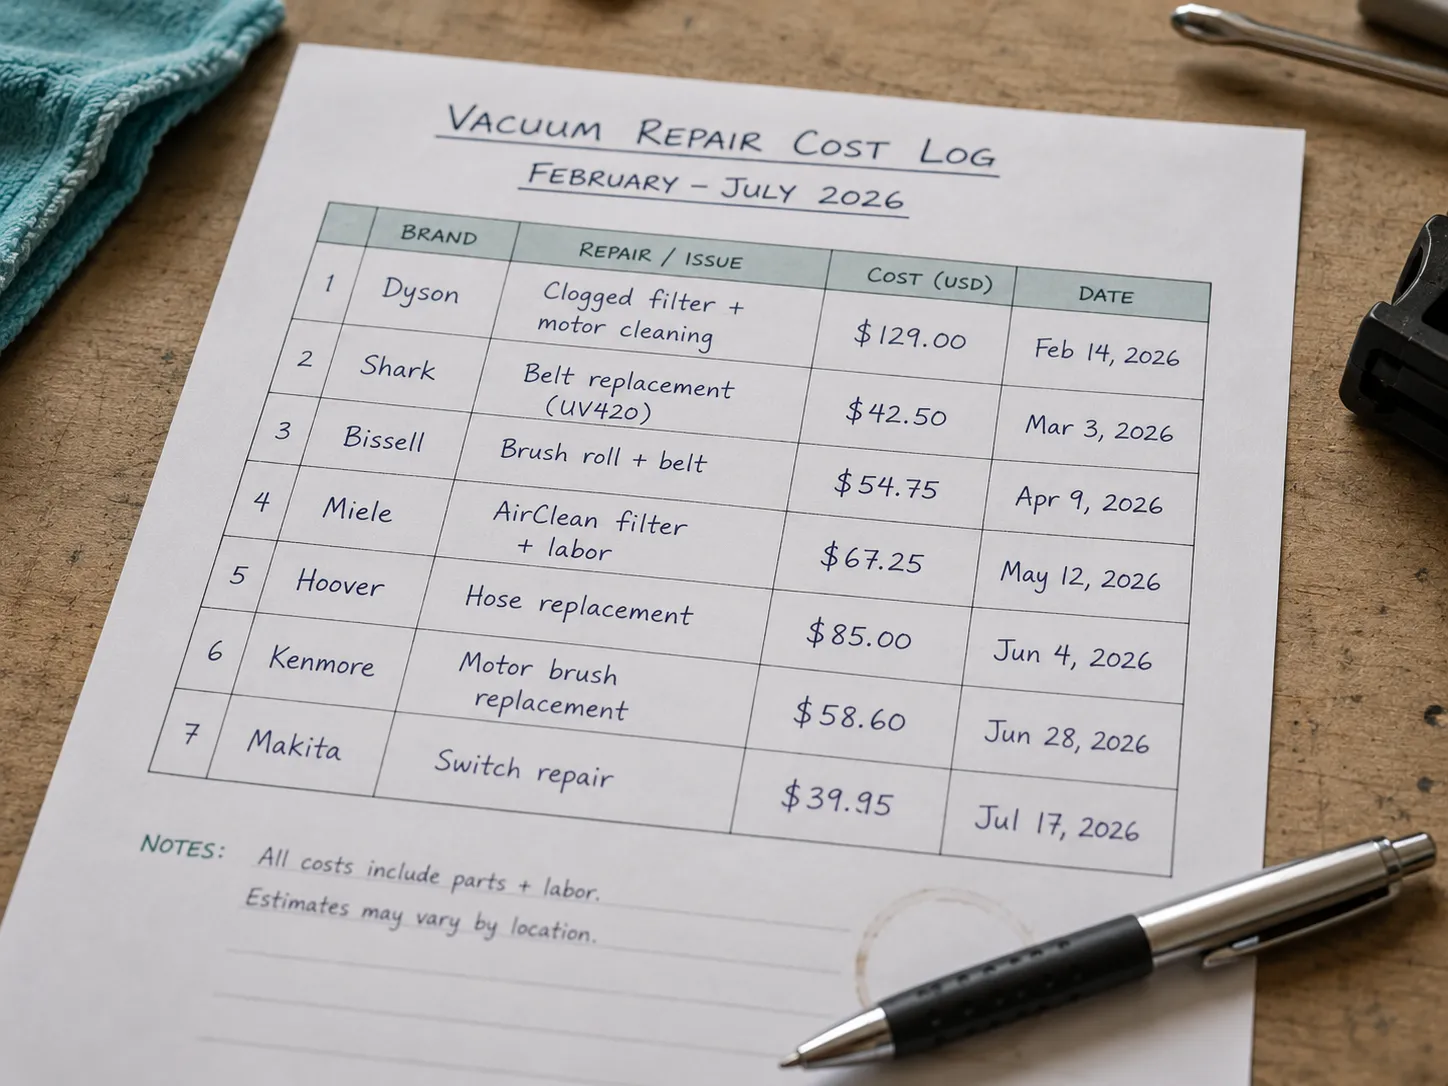 VACUUM REPAIR COST LOG
FEBRUARY – JULY 2026
BRAND REPAIR / ISSUE COST (USD) DATE
1 Dyson Clogged filter + motor cleaning $129.00 Feb 14, 2026
2 Shark Belt replacement (UV420) $42.50 Mar 3, 2026
3 Bissell Brush roll + belt $54.75 Apr 9, 2026
4 Miele AirClean filter + labor $67.25 May 12, 2026
5 Hoover Hose replacement $85.00 Jun 4, 2026
6 Kenmore Motor brush replacement $58.60 Jun 28, 2026
7 Makita Switch repair $39.95 Jul 17, 2026
NOTES: All costs include parts + labor.
Estimates may vary by location.